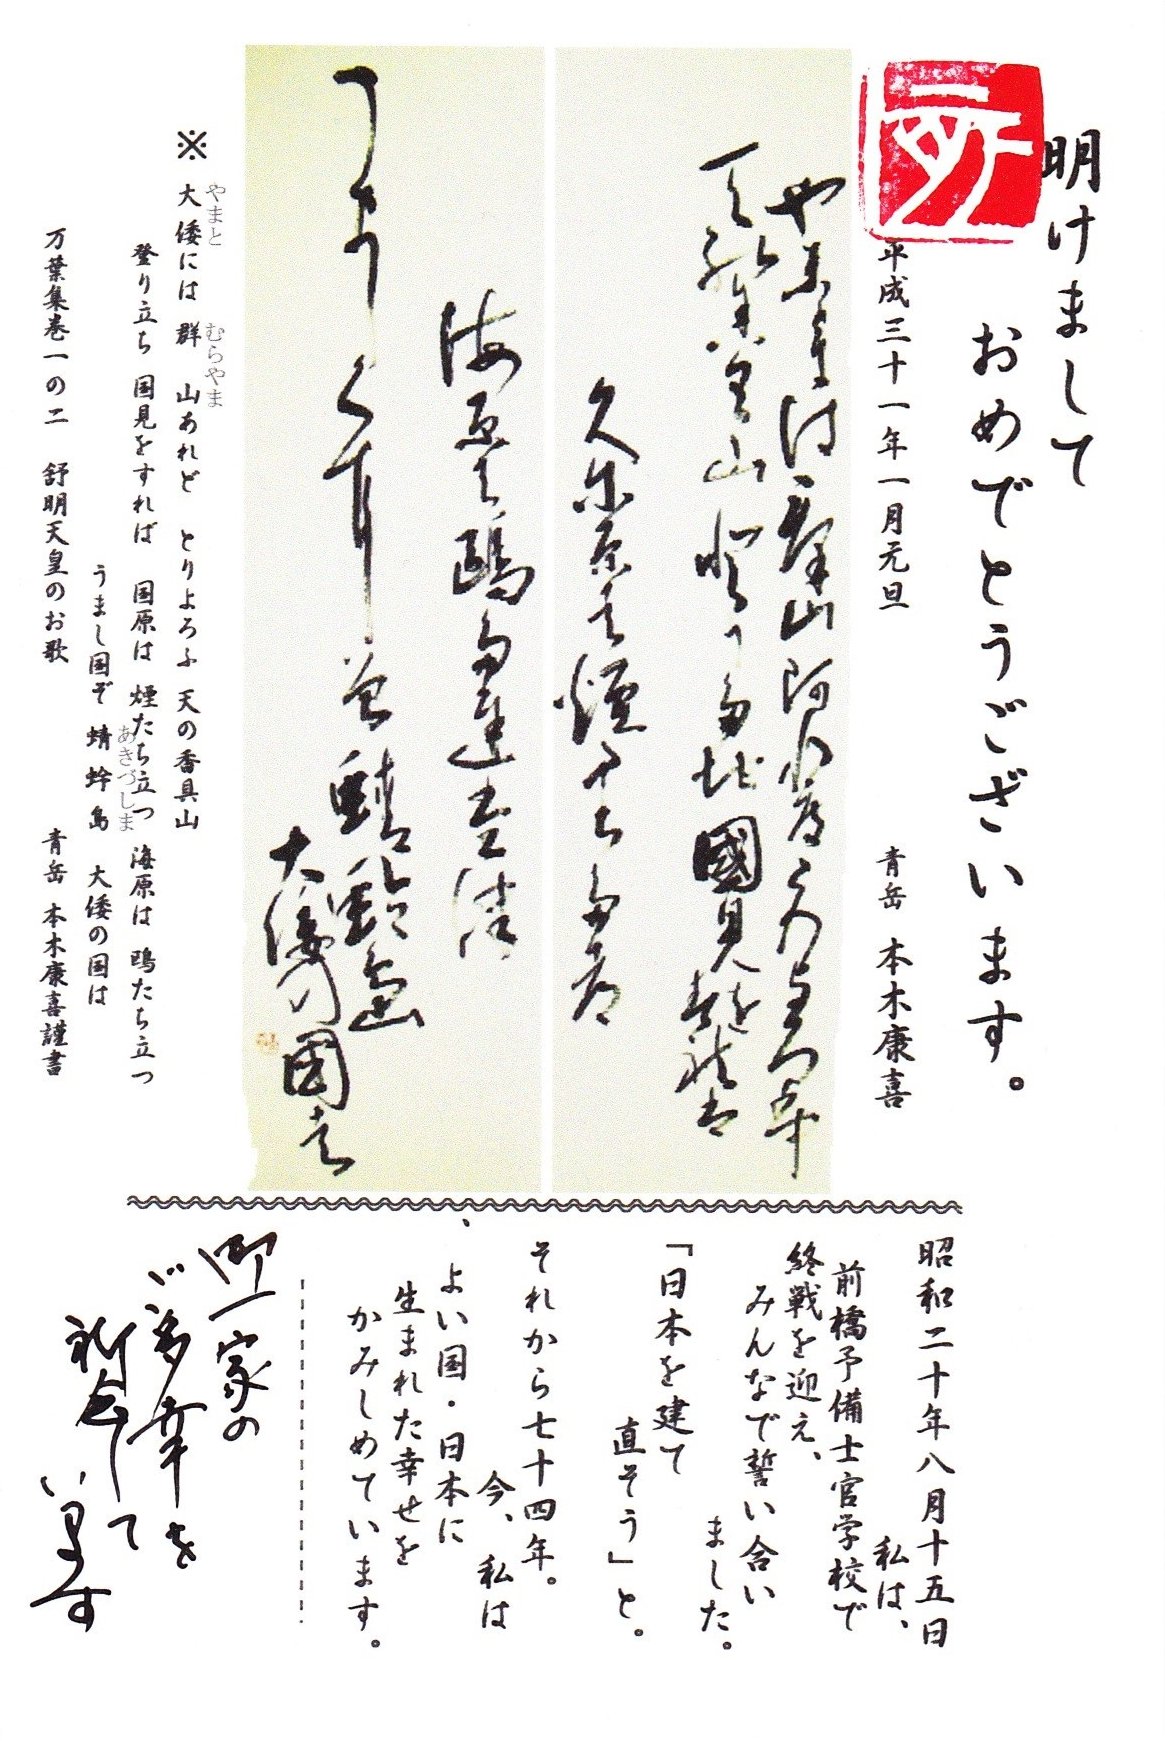 明けまして
おめでとうございます。
亥
平成三十一年一月元旦
青岳 本木康喜
群山阿
山 國見を
久尓原 煙
海原 鴎
蜻蛉島
大倭 國
※ 大倭には 群 山あれど とりよろふ 天の香具山
やまと むらやま
登り立ち 国見をすれば 国原は 煙たち立つ 海原は 鴎たち立つ
うまし国ぞ 蜻 蛉 島 大倭の国は
あきづしま
万葉集巻一の二 舒明天皇のお歌 青岳 本木康喜謹書
昭和二十年八月十五日
私は、
前橋予備士官学校で
終戦を迎え、
みんなで誓い合い
ました。
「日本を建て
直そう」と。
それから七十四年。
今、私は
よい国・日本に
生まれた幸せを
かみしめています。
御一家の
ご多幸を
祈念して
います